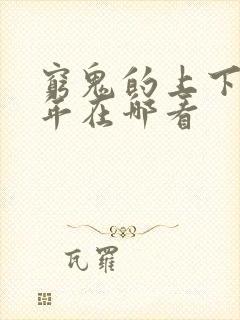 窮鬼的上下
年在哪看
瓦羅